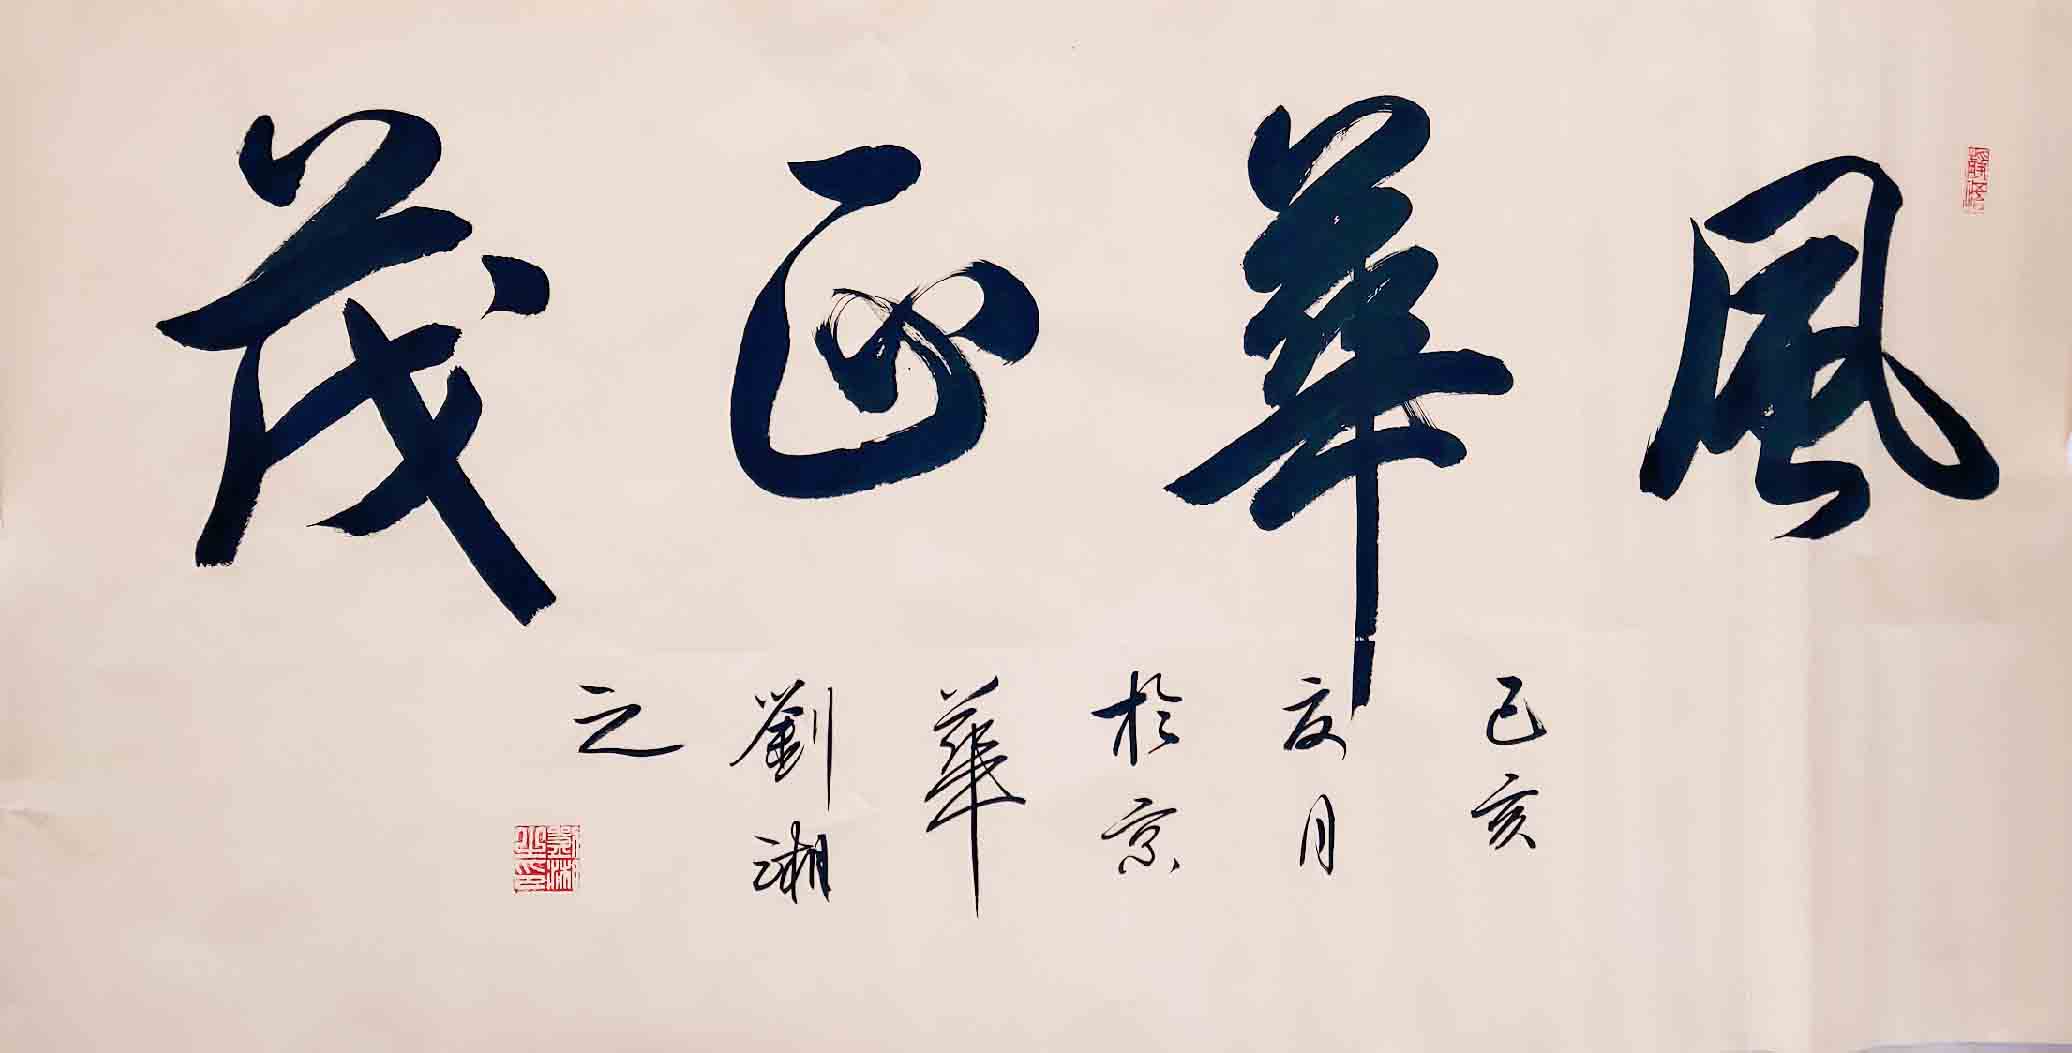 風華正茂
己亥
夏月
於京
華
劉湘
之